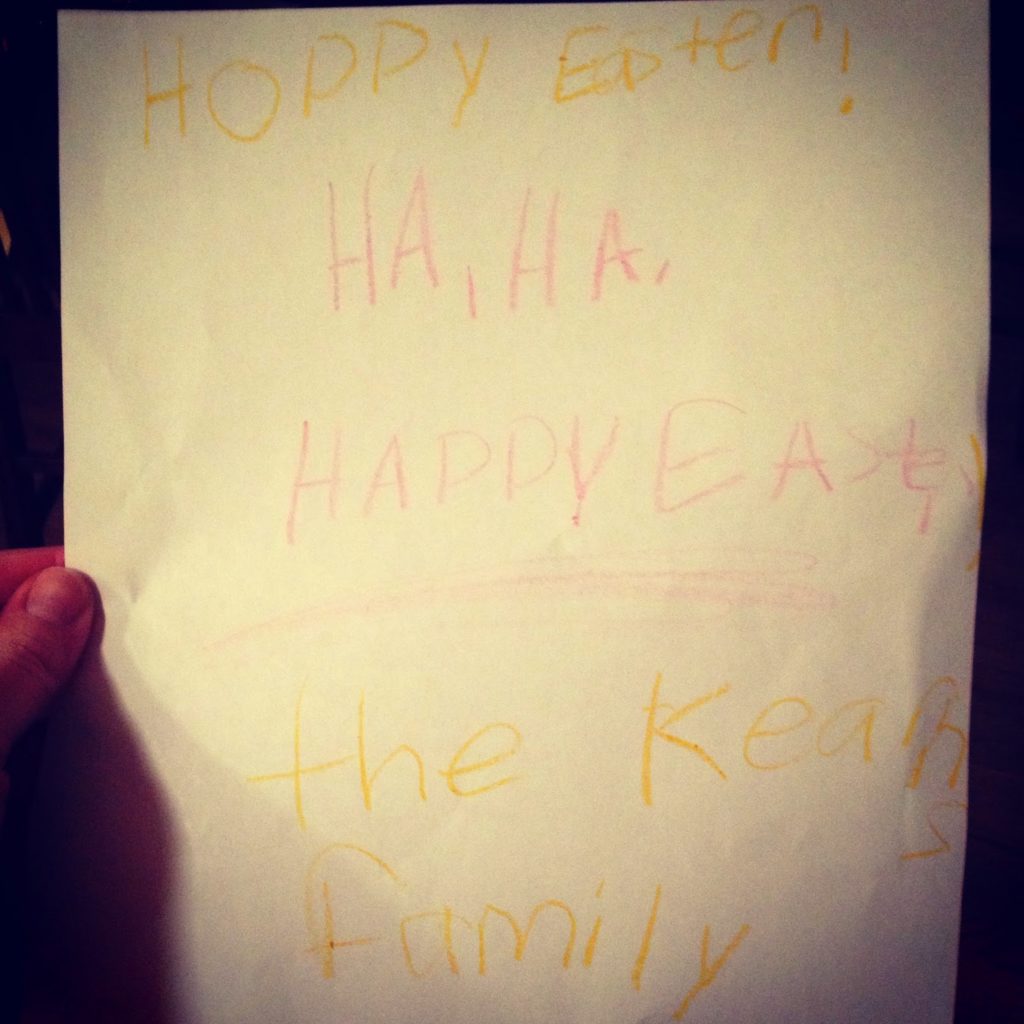 HOPPY Easter!
HA, HA.
HAPPY EASter,
the Kearns
Family